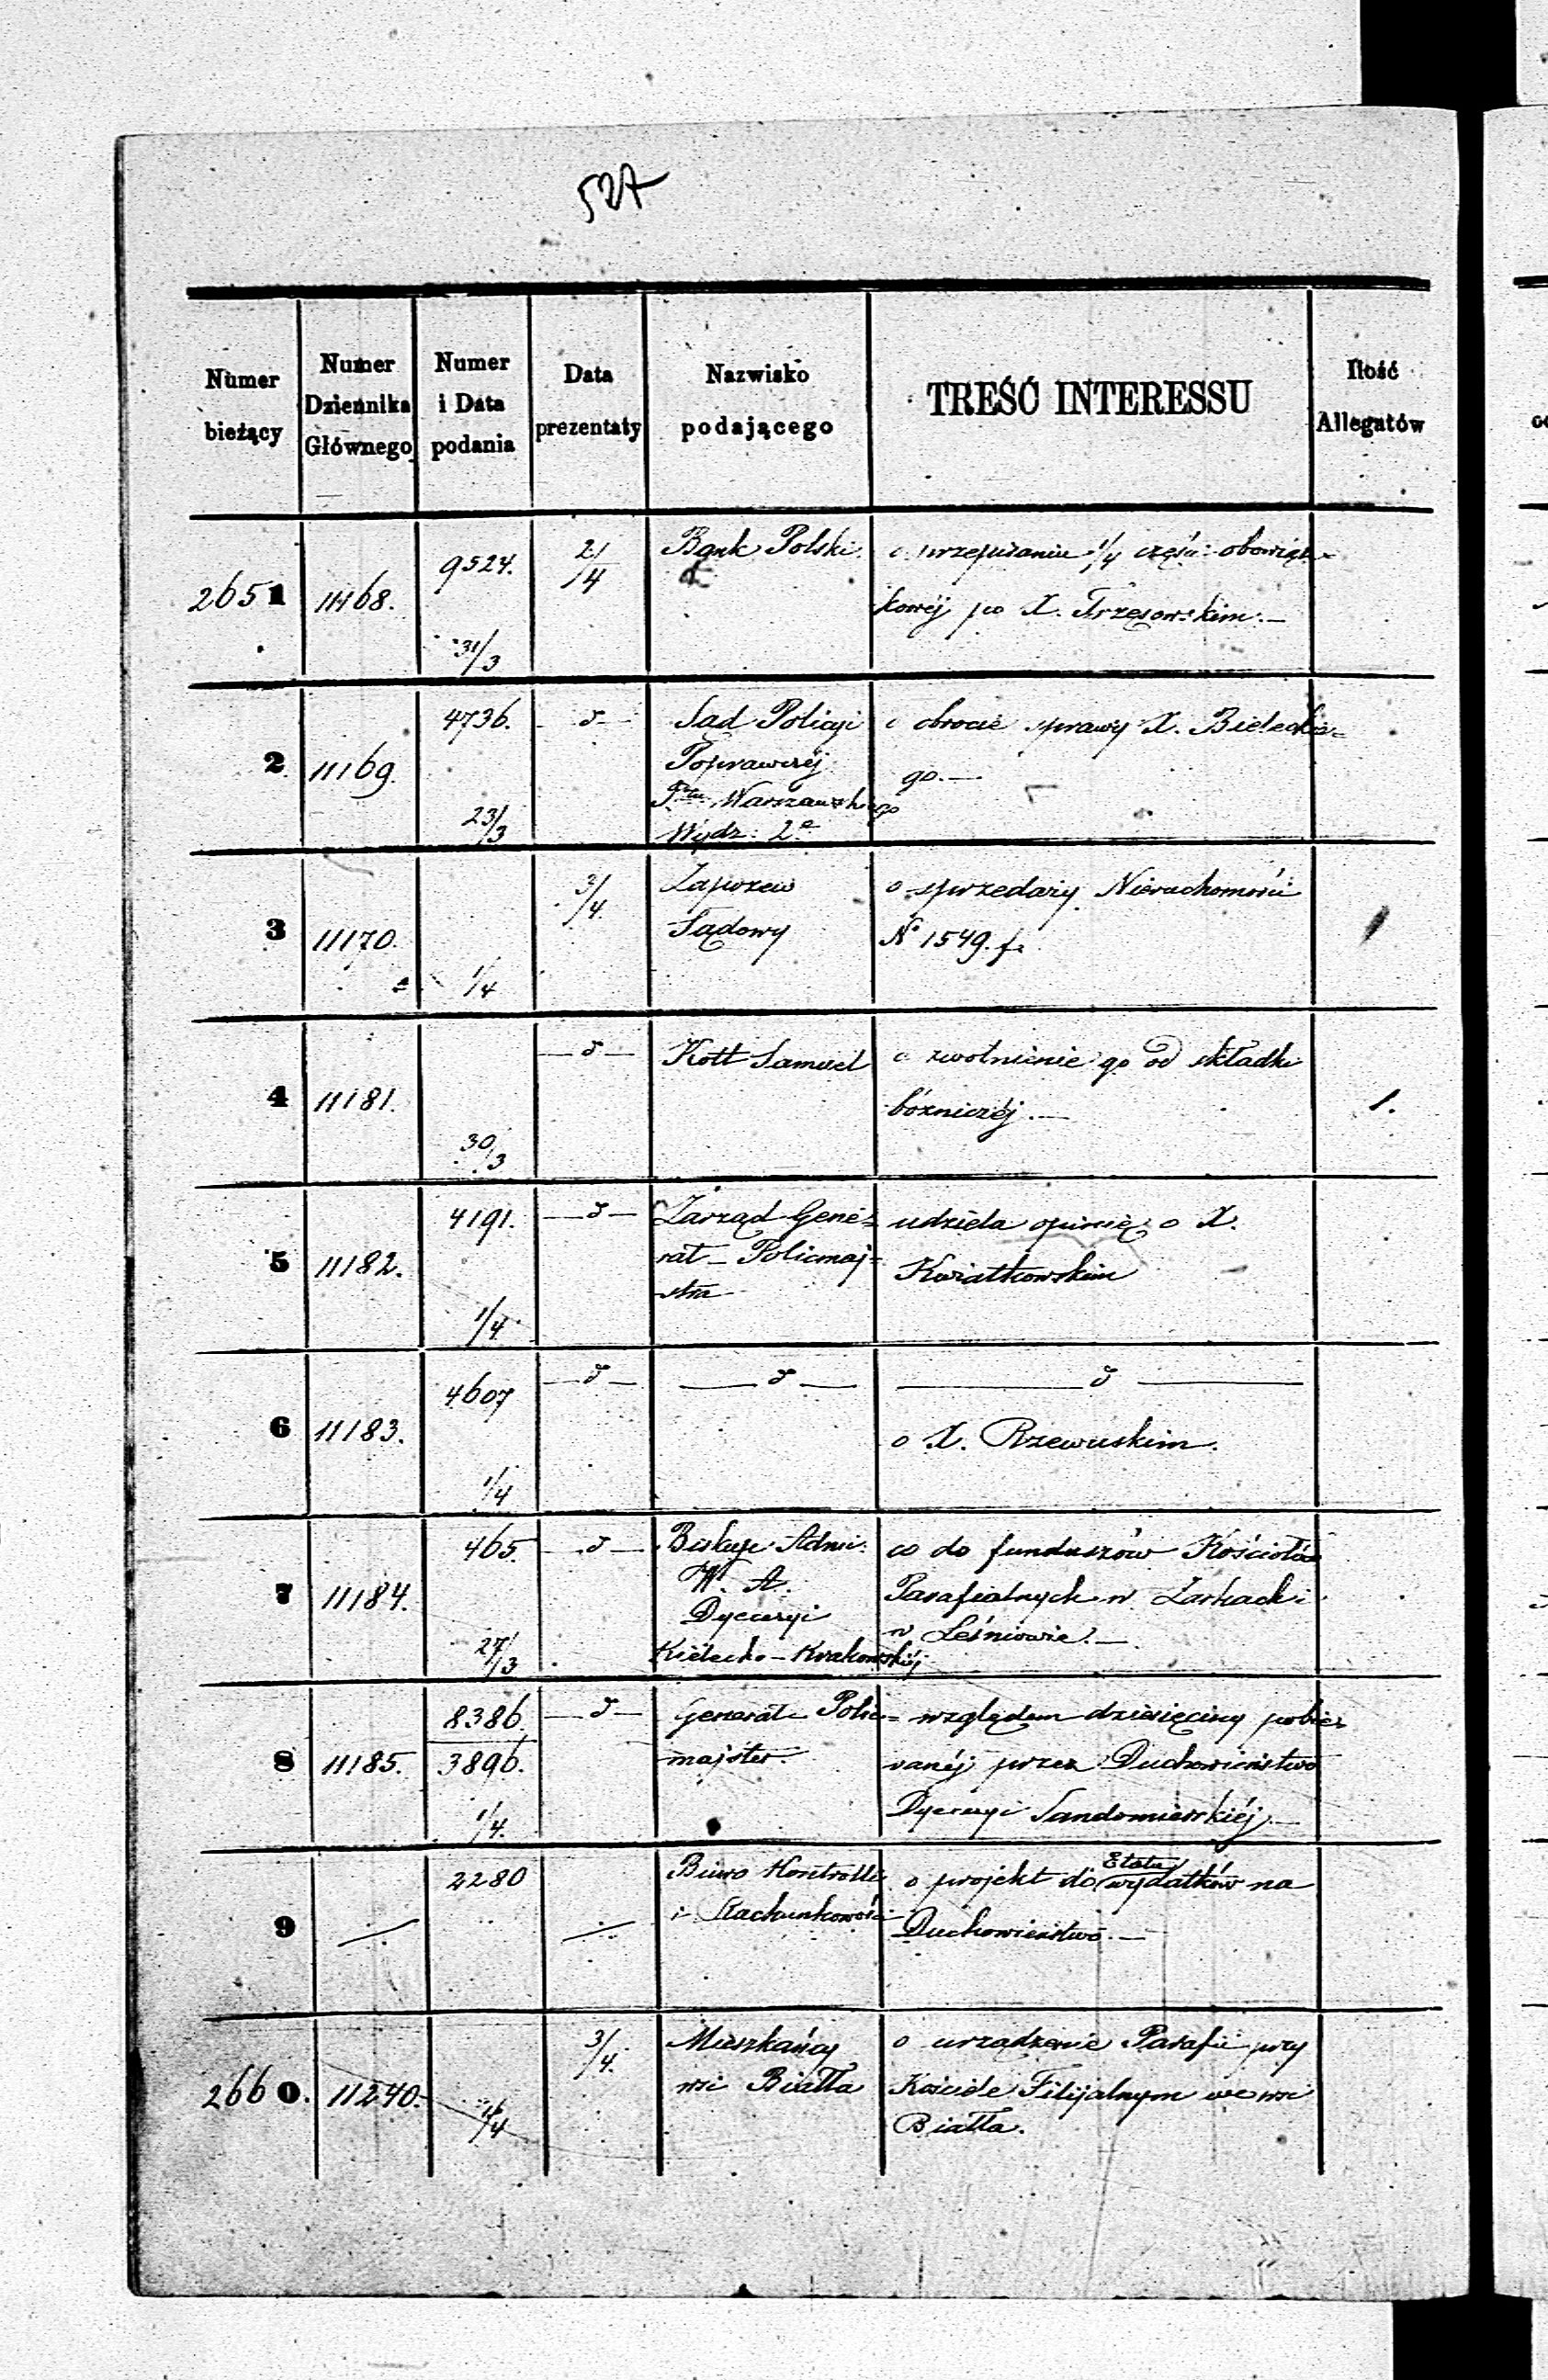 527
Numer bieżący
Numer Dziennika Głównego
Numer i Data podania
Data prezentaty
Nazwisko podającego
TREŚĆ INTERESSU
Ilość Allegatów
2651 11168. 9524. 31/3 2/4 Bank Polski. o przepisaniu 1/4 częśći obowiąz=
kowéj po X. Trzęsowskim.—
2 11169. 4736. 23/3 —d— Sąd Policyi o obrocie sprawy X. Bieleckie=
Poprawczéj go.—
Ptu Warszawskiego
Wydz: 2o
3 11170. 1/4 3/4 Zapozew o sprzedaży Nieruchomości
Sądowy No 1549. f.
4 11181. 30/3 —d— Kott Samuel o zwolnienie go od składki 1.
bózniczéj.—
5 11182. 4191. 1/4 —d— Zarząd Gene= udziela opinię o X.
rał-Policmaj= Kwiatkowskim
stra
6 11183. 4607 1/4 —d— —d— —d—
o X. Rzewuskim.
7 11184. 465. 27/3 —d— Biskup Admi. co do funduszów Kościołów
Parafialnych w Żarkach i
Dyecezyi w Leśniowie.—
Kielecko-Krakowskiéj
8 11185. 8386 3896. 1/4. —d— Generał-Polic= względem dziesięciny pobie=
majster. ranéj przez Duchowieństwo
Dyecezyi Sandomierskiéj.—
9 2280 Biuro Kontrolli o projekt do Etatu wydatków na
i Rachunkowości Duchowieństwo.—
2660. 11240. 1/4 3/4. Mieszkańcy o urządzenie Parafii przy
wsi Biatta Kościele Filijalnym we wsi
Biatta.